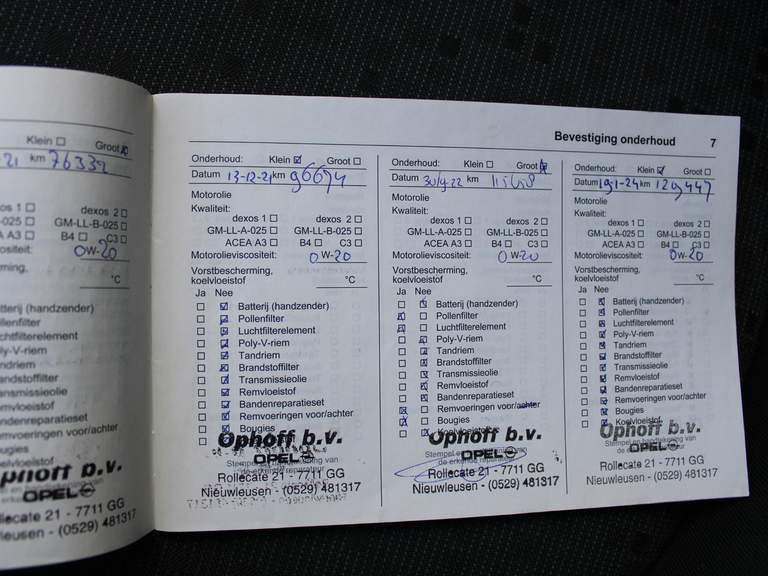 Klein Groot
-21 km 76332
dexos 2
-025 GM-LL-B-025
A3 B4 C3
0W-20
°C
Batterij (handzender)
Pollenfilter
Luchtfilterelement
Poly-V-riem
Tandriem
Brandstoffilter
Transmissieolie
Remvloeistof
Bandenreparatieset
Remvoeringen voor/achter
Ophoff b.v.
OPEL
Rollecate 21 - 7711 GG
Nieuwleusen - (0529) 481317
Bevestiging onderhoud 7
Onderhoud: Klein Groot
Datum 13-12-21 km 96674
Motorolie
Kwaliteit:
dexos 1 dexos 2
GM-LL-A-025 GM-LL-B-025
ACEA A3 B4 C3
Motorolieviscositeit: 0W-20
Vorstbescherming,
koelvloeistof °C
Ja Nee
Batterij (handzender)
Pollenfilter
Luchtfilterelement
Poly-V-riem
Tandriem
Brandstoffilter
Transmissieolie
Remvloeistof
Bandenreparatieset
Remvoeringen voor/achter
Bougies
Ophoff b.v.
Stempel en handtekening van
de erkende reparateur
OPEL
Rollecate 21 - 7711 GG
Nieuwleusen - (0529) 481317
Onderhoud: Klein Groot
Datum km
Motorolie
Kwaliteit:
dexos 1 dexos 2
GM-LL-A-025 GM-LL-B-025
ACEA A3 B4 C3
Motorolieviscositeit: 0W-20
Vorstbescherming,
koelvloeistof °C
Ja Nee
Batterij (handzender)
Pollenfilter
Luchtfilterelement
Poly-V-riem
Tandriem
Brandstoffilter
Transmissieolie
Remvloeistof
Bandenreparatieset
Remvoeringen voor/achter
Bougies
Koelvloeistof
Ophoff b.v.
Stempel en handtekening van
de erkende reparateur
OPEL
Rollecate 21 - 7711 GG
Nieuwleusen - (0529) 481317
Onderhoud: Klein Groot
Datum 19-1-24 km 129447
Motorolie
Kwaliteit:
dexos 1 dexos 2
GM-LL-A-025 GM-LL-B-025
ACEA A3 B4 C3
Motorolieviscositeit: 0W-20
Vorstbescherming,
koelvloeistof °C
Ja Nee
Batterij (handzender)
Pollenfilter
Luchtfilterelement
Poly-V-riem
Tandriem
Brandstoffilter
Transmissieolie
Remvloeistof
Bandenreparatieset
Remvoeringen voor/achter
Bougies
Koelvloeistof
Ophoff b.v.
Stempel en handtekening van
de erkende reparateur
OPEL
Rollecate 21 - 7711 GG
Nieuwleusen - (0529) 481317